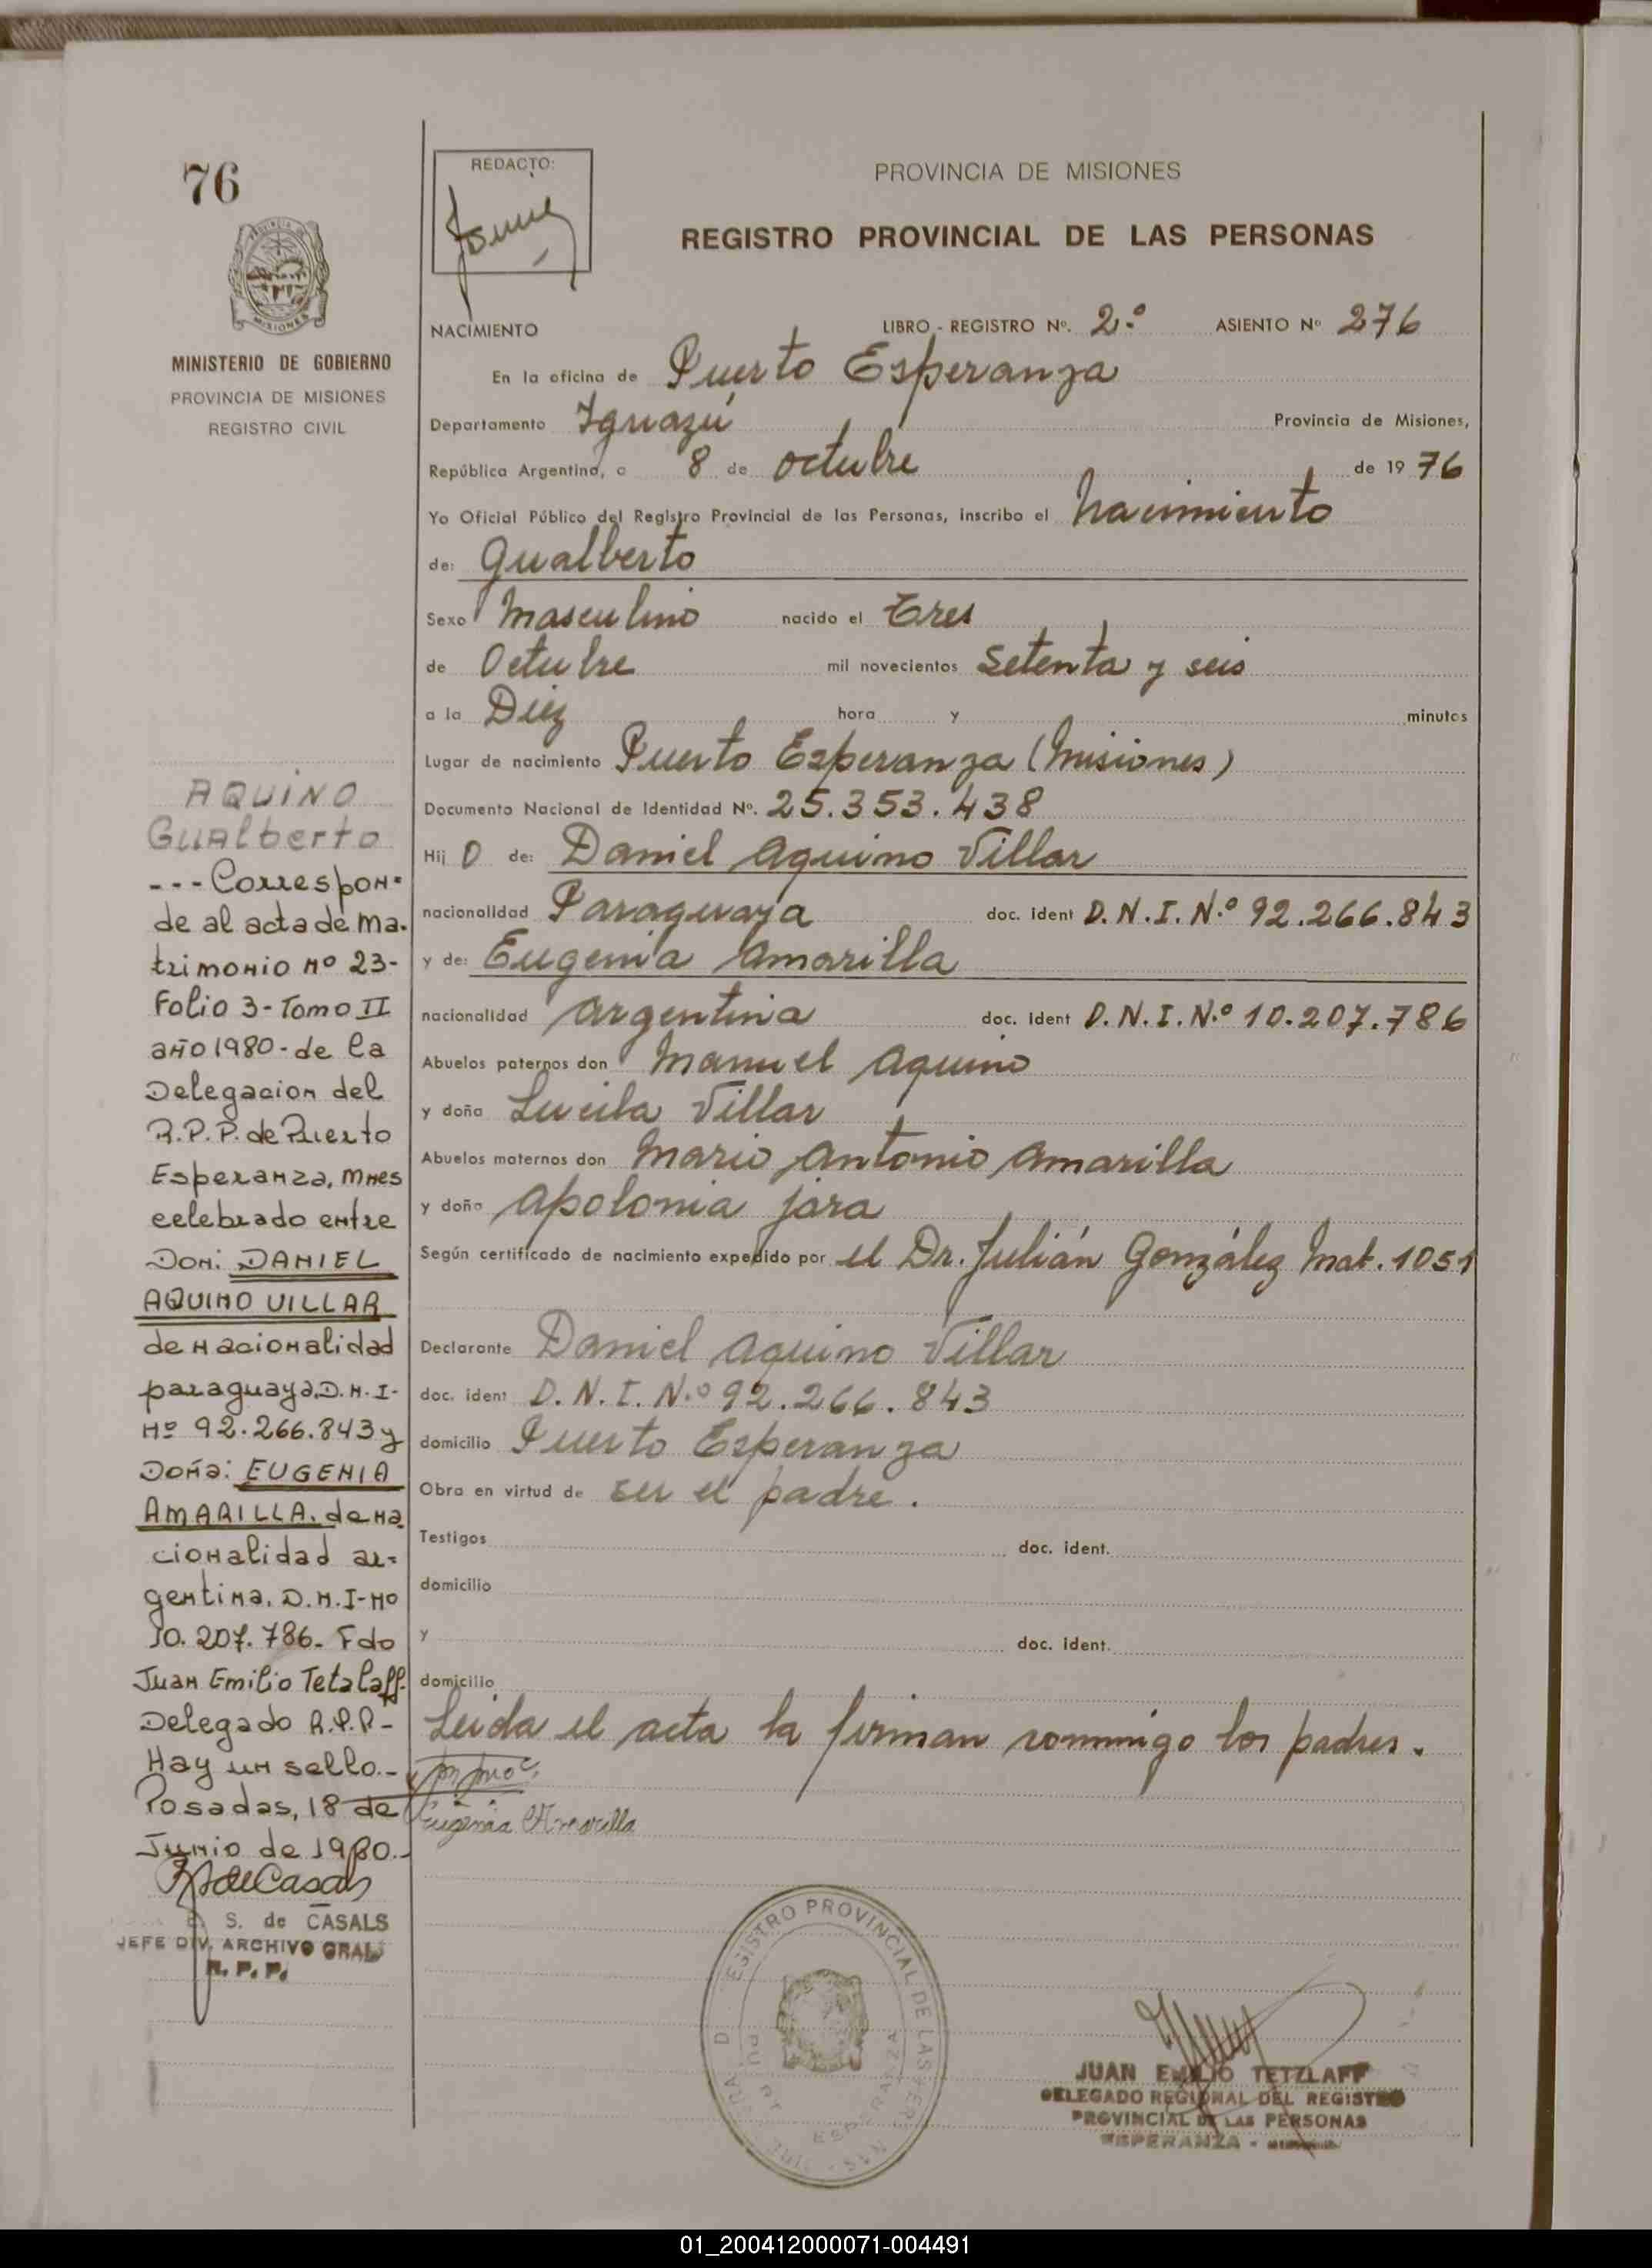 76
REDACTO:
PROVINCIA DE MISIONES
REGISTRO PROVINCIAL DE LAS PERSONAS
MISIONES
MINISTERIO DE GOBIERNO
PROVINCIA DE MISIONES
REGISTRO CIVIL
NACIMIENTO LIBRO - REGISTRO Nº. 2.º ASIENTO Nº 276
En la oficina de Puerto Esperanza
Departamento Iguazú Provincia de Misiones,
República Argentina, a 8 de octubre de 19 76
Yo Oficial Público del Registro Provincial de las Personas, inscribo el Nacimiento
de: Gualberto
Sexo Masculino nacido el Tres
de Octubre mil novecientos Setenta y seis
a la Diez hora y minutos
Lugar de nacimiento Puerto Esperanza (Misiones)
Documento Nacional de Identidad Nº. 25.353.438
Hij o de: Daniel Aquino Villar
nacionalidad Paraguaya doc. ident D.N.I.N.º 92.266.843
y de: Eugenia Amarilla
nacionalidad Argentina doc. ident D.N.I.N.º 10.207.786
Abuelos paternos don Manuel Aquino
y doña Lucila Villar
Abuelos maternos don Mario Antonio Amarilla
y doña Apolonia Jara
Según certificado de nacimiento expedido por el Dr. Julián González Mat. 1051
Declarante Daniel Aquino Villar
doc. ident D.N.I.N.º 92.266.843
domicilio Puerto Esperanza
Obra en virtud de ser el padre.
Testigos doc. ident.
domicilio
y doc. ident.
domicilio
Leida el acta la firman conmigo los padres.
Eugenia Amarilla
AQUINO
Gualberto
---Correspon=
de al acta de ma-
trimonio nº 23-
Folio 3-Tomo II
año 1980-de la
Delegacion del
R.P.P. de Puerto
Esperanza, Mnes
celebrado entre
Don: DANIEL
AQUINO VILLAR
de nacionalidad
paraguaya, D.N.I-
Nº 92.266.843 y
Doña: EUGENIA
AMARILLA. de na
cionalidad ar=
gentina. D.N.I-Nº
10.207.786- Fdo
Juan Emilio Tetzlaff-
Delegado R.P.P-
Hay un sello.-
Posadas, 18 de
Junio de 1980.-
S. de CASALS
JEFE DIV. ARCHIVO GRAL
R. P. P.
REGISTRO PROVINCIAL DE LAS PERSONAS
ESPERANZA
JUAN EMILIO TETZLAFF
DELEGADO REGIONAL DEL REGISTRO
PROVINCIAL DE LAS PERSONAS
ESPERANZA -
01_200412000071-004491